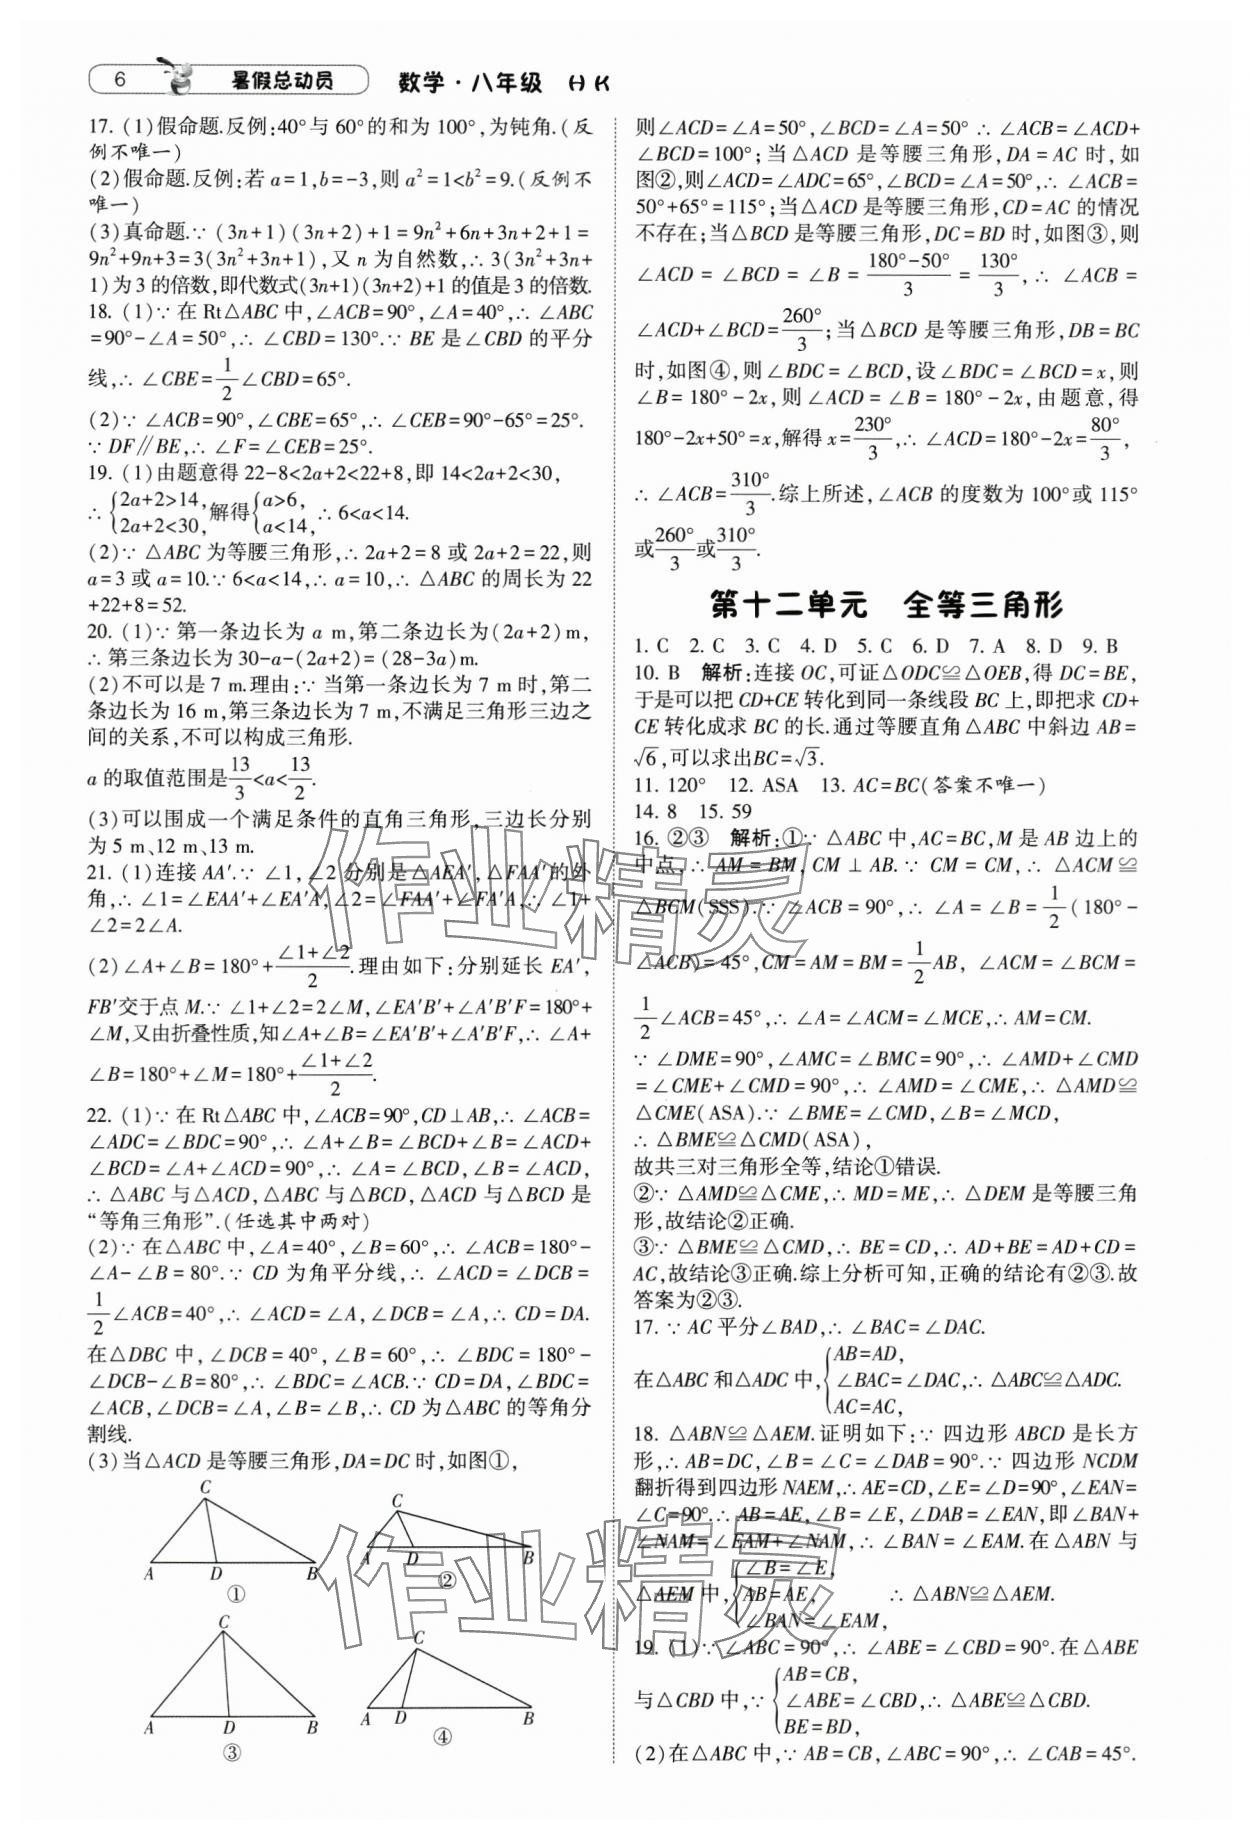 6 暑假总动员 数学·八年级 HK
17. (1)假命题.反例:40°与60°的和为100°,为钝角.(反
例不唯一)
(2)假命题.反例:若a=1,b=-3,则a²=1<b²=9.(反例不
唯一)
(3)真命题.∵ (3n+1)(3n+2)+1=9n²+6n+3n+2+1=
9n²+9n+3=3(3n²+3n+1),又n为自然数,∴ 3(3n²+3n+
1)为3的倍数,即代数式(3n+1)(3n+2)+1的值是3的倍数.
18. (1)∵ 在Rt△ABC中,∠ACB=90°,∠A=40°,∴ ∠ABC
=90°-∠A=50°,∴ ∠CBD=130°.∵ BE是∠CBD的平分
线,∴ ∠CBE=1/2∠CBD=65°.
(2)∵ ∠ACB=90°,∠CBE=65°,∴ ∠CEB=90°-65°=25°.
∵ DF∥BE,∴ ∠F=∠CEB=25°.
19. (1)由题意得22-8<2a+2<22+8,即14<2a+2<30,
∴ {2a+2>14, 2a+2<30, 解得{a>6, a<14, ∴ 6<a<14.
(2)∵ △ABC为等腰三角形,∴ 2a+2=8或2a+2=22,则
a=3或a=10.∵ 6<a<14,∴ a=10,∴ △ABC的周长为22
+22+8=52.
20. (1)∵ 第一条边长为a m,第二条边长为(2a+2)m,
∴ 第三条边长为30-a-(2a+2)=(28-3a)m.
(2)不可以是7 m.理由:∵ 当第一条边长为7 m时,第二
条边长为16 m,第三条边长为7 m,不满足三角形三边之
间的关系,不可以构成三角形.
a的取值范围是13/3<a<13/2.
(3)可以围成一个满足条件的直角三角形,三边长分别
为5 m、12 m、13 m.
21. (1)连接AA′.∵ ∠1,∠2分别是△AEA′,△FAA′的外
角,∴ ∠1=∠EAA′+∠EA′A,∠2=∠FAA′+∠FA′A,∴ ∠1+
∠2=2∠A.
(2)∠A+∠B=180°+(∠1+∠2)/2.理由如下:分别延长EA′,
FB′交于点M.∵ ∠1+∠2=2∠M,∠EA′B′+∠A′B′F=180°+
∠M,又由折叠性质,知∠A+∠B=∠EA′B′+∠A′B′F,∴ ∠A+
∠B=180°+∠M=180°+(∠1+∠2)/2.
22. (1)∵ 在Rt△ABC中,∠ACB=90°,CD⊥AB,∴ ∠ACB=
∠ADC=∠BDC=90°,∴ ∠A+∠B=∠BCD+∠B=∠ACD+
∠BCD=∠A+∠ACD=90°,∴ ∠A=∠BCD,∠B=∠ACD,
∴ △ABC与△ACD,△ABC与△BCD,△ACD与△BCD是
“等角三角形”.(任选其中两对)
(2)∵ 在△ABC中,∠A=40°,∠B=60°,∴ ∠ACB=180°-
∠A-∠B=80°.∵ CD为角平分线,∴ ∠ACD=∠DCB=
1/2∠ACB=40°,∴ ∠ACD=∠A,∠DCB=∠A,∴ CD=DA.
在△DBC中,∠DCB=40°,∠B=60°,∴ ∠BDC=180°-
∠DCB-∠B=80°,∴ ∠BDC=∠ACB.∵ CD=DA,∠BDC=
∠ACB,∠DCB=∠A,∠B=∠B,∴ CD为△ABC的等角分
割线.
(3)当△ACD是等腰三角形,DA=DC时,如图①,
C A D B ①
C A D B ②
C A D B ③
C A D B ④
则∠ACD=∠A=50°,∠BCD=∠A=50°∴ ∠ACB=∠ACD+
∠BCD=100°;当△ACD是等腰三角形,DA=AC时,如
图②,则∠ACD=∠ADC=65°,∠BCD=∠A=50°,∴ ∠ACB=
50°+65°=115°;当△ACD是等腰三角形,CD=AC的情况
不存在;当△BCD是等腰三角形,DC=BD时,如图③,则
∠ACD=∠BCD=∠B=(180°-50°)/3=130°/3,∴ ∠ACB=
∠ACD+∠BCD=260°/3;当△BCD是等腰三角形,DB=BC
时,如图④,则∠BDC=∠BCD,设∠BDC=∠BCD=x,则
∠B=180°-2x,则∠ACD=∠B=180°-2x,由题意,得
180°-2x+50°=x,解得x=230°/3,∴ ∠ACD=180°-2x=80°/3,
∴ ∠ACB=310°/3.综上所述,∠ACB的度数为100°或115°
或260°/3或310°/3.
第十二单元 全等三角形
1. C 2. C 3. C 4. D 5. C 6. D 7. A 8. D 9. B
10. B 解析:连接OC,可证△ODC≌△OEB,得DC=BE,
于是可以把CD+CE转化到同一条线段BC上,即把求CD+
CE转化成求BC的长.通过等腰直角△ABC中斜边AB=
√6,可以求出BC=√3.
11. 120° 12. ASA 13. AC=BC(答案不唯一)
14. 8 15. 59
16. ②③ 解析:①∵ △ABC中,AC=BC,M是AB边上的
中点,∴ AM=BM,CM⊥AB.∵ CM=CM,∴ △ACM≌
△BCM(SSS).∵ ∠ACB=90°,∴ ∠A=∠B=1/2(180°-
∠ACB)=45°,CM=AM=BM=1/2AB, ∠ACM=∠BCM=
1/2∠ACB=45°,∴ ∠A=∠ACM=∠MCE,∴ AM=CM.
∵ ∠DME=90°,∠AMC=∠BMC=90°,∴ ∠AMD+∠CMD
=∠CME+∠CMD=90°,∴ ∠AMD=∠CME,∴ △AMD≌
△CME(ASA).∵ ∠BME=∠CMD,∠B=∠MCD,
∴ △BME≌△CMD(ASA),
故共三对三角形全等,结论①错误.
②∵ △AMD≌△CME,∴ MD=ME,∴ △DEM是等腰三角
形,故结论②正确.
③∵ △BME≌△CMD,∴ BE=CD,∴ AD+BE=AD+CD=
AC,故结论③正确.综上分析可知,正确的结论有②③.故
答案为②③.
17. ∵ AC平分∠BAD,∴ ∠BAC=∠DAC.
在△ABC和△ADC中,{AB=AD, ∠BAC=∠DAC, AC=AC, ∴ △ABC≌△ADC.
18. △ABN≌△AEM.证明如下:∵ 四边形ABCD是长方
形,∴ AB=DC,∠B=∠C=∠DAB=90°.∵ 四边形NCDM
翻折得到四边形NAEM,∴ AE=CD,∠E=∠D=90°,∠EAN=
∠C=90°.∴ AB=AE,∠B=∠E,∠DAB=∠EAN,即∠BAN+
∠NAM=∠EAM+∠NAM,∴ ∠BAN=∠EAM.在△ABN与
△AEM中,{∠B=∠E, AB=AE, ∠BAN=∠EAM, ∴ △ABN≌△AEM.
19. (1)∵ ∠ABC=90°,∴ ∠ABE=∠CBD=90°.在△ABE
与△CBD中,∵ {AB=CB, ∠ABE=∠CBD, BE=BD, ∴ △ABE≌△CBD.
(2)在△ABC中,∵ AB=CB,∠ABC=90°,∴ ∠CAB=45°.
作业精灵
作业精灵